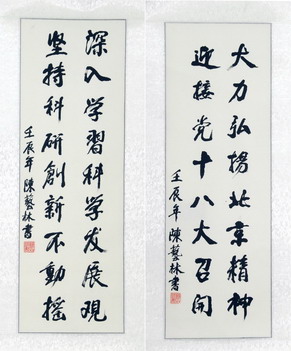 大力弘揚北京精神
迎接党十八大召開
壬辰年陳藝林書
深入学習科学发展观
坚持科研創新不動摇
壬辰年陳藝林書